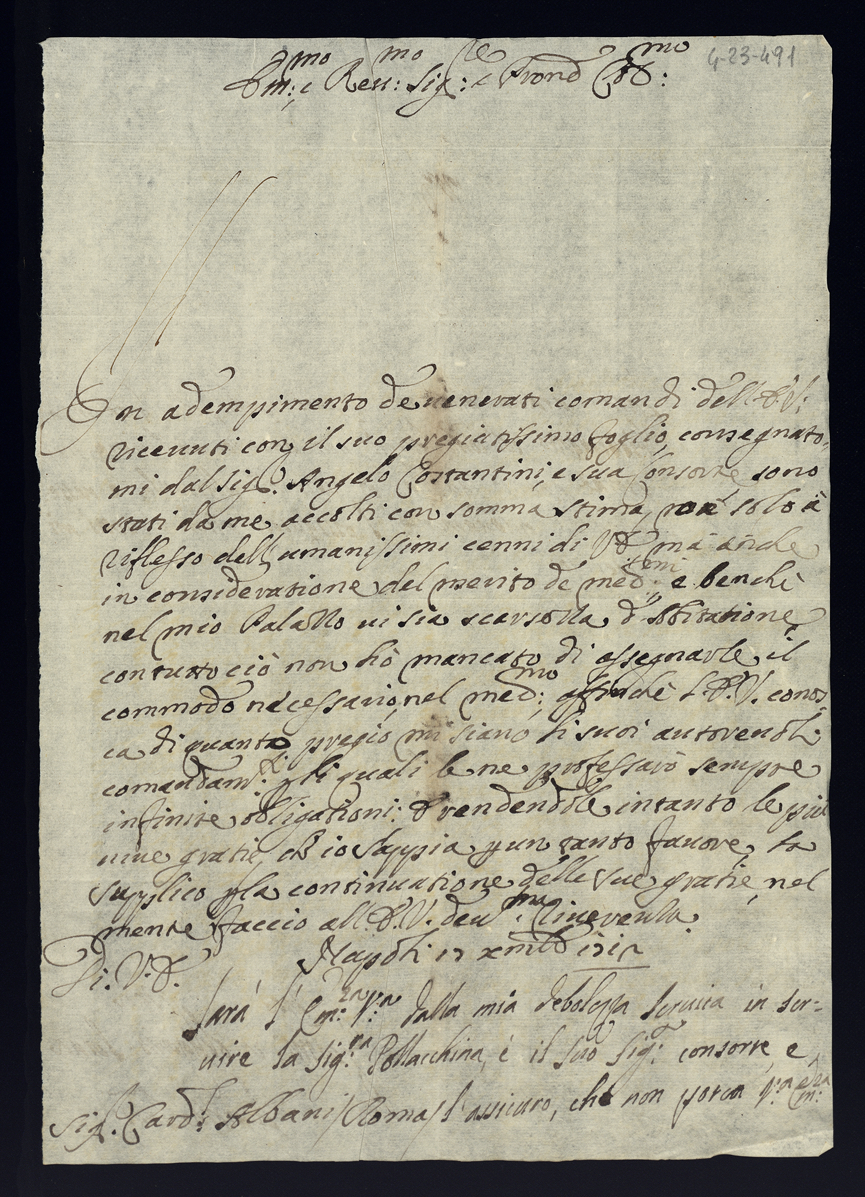 4-23-491
Em:mo e Reu:mo Sig:re e Pron Col:mo
In adempimento de uenerati comandi dell'E.V.
riceuuti con il suo pregiatissimo foglio, consegnato-
mi dal Sig:r Angelo Costantini, e sua Consorte sono
stati da me accolti con somma stima, non solo à
riflesso dell'umanissimi cenni di VE mà anche
in consideratione del merito de med:mi e benchè
nel mio Palazzo ui sia scarsezza d'abitatione
con tutto ciò non hò mancato di assegnarle il
commodo necessario, nel med:mo affinchè L'E.V. conos-
ca di quanto pregio mi siano li suoi autoreuoli
comandam:ti p li quali le ne professarò sempre
infinite obligationi. E rendendole intanto le più
uiue gratie, ch'io sappia p un tanto fauore, la
supplico p la continuatione delle sue gratie, nel
mentre faccio all'E.V. deu:ma riuerenza.
Napoli 17 xmbre
Di. V.E.
Sarà l'Em:za V:ra dalla mia debolezza seruita in ser-
uire la Sig:ra Pollacchina, è il suo Sig:r consorte, e
Sig:r Card:l Albani /Roma/ l'assicuro, che non potea V:ra Em:za